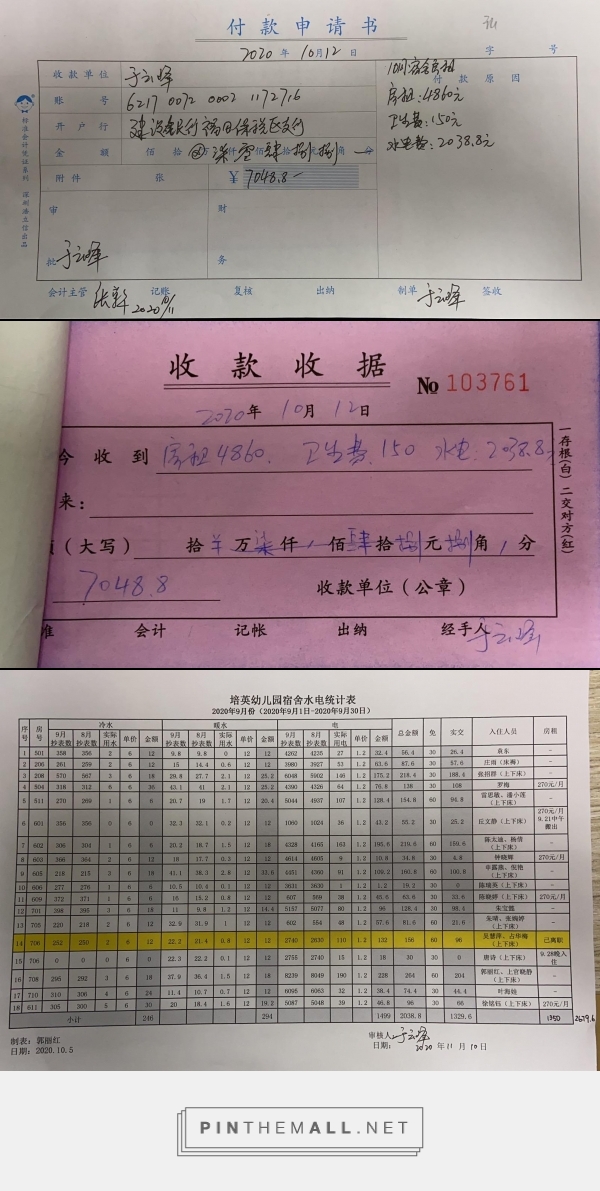 付款申请书
2020 年 10月12 日 字 号
收款单位 于云峰
付款原因
10月宿舍房租
房租:4860元
卫生费:150元
水电费:2038.8元
账号 6217 0072 0002 1172716
开户行
金额 佰 拾 万 仟 佰 拾 元 角 分
附件 张 ¥ 7048.8-
审
批 于云峰
财
务
会计主管 记账 复核 出纳 制单 于云峰 签收
标准会计凭证系列
收款收据 No 103761
2020年 10月 12日
今收到 房租4860. 卫生费.150 水电.2038.8元
来:
(大写) 拾 万柒仟 佰肆拾捌元捌角 分
7048.8 收款单位(公章)
准 会计 记帐 出纳 经手人 于云峰
一存根(白) 二交对方(红)
培英幼儿园宿舍水电统计表
2020年9月份(2020年9月1日-2020年9月30日)
序号 房号 冷水 暖水 电 总金额 免 实交 入住人员 房租
9月抄表数 8月抄表数 实际用水 单价 金额 9月抄表数 8月抄表数 实际用水 单价 金额 9月抄表数 8月抄表数 实际用电 单价 金额
1 501 358 356 2 6 12 9.8 9.8 0 12 12 4262 4235 27 1.2 32.4 56.4 30 26.4 -
2 206 261 259 2 6 12 15 14.4 0.6 12 12 3980 3927 53 1.2 63.6 87.6 30 57.6 -
3 208 570 567 3 6 18 29.8 27.7 2.1 12 25.2 6048 5902 146 1.2 175.2 218.4 30 188.4 张招群(上下床) -
4 504 318 312 6 6 36 43.1 41 2.1 12 25.2 4390 4326 64 1.2 76.8 138 30 108 罗梅 270元/月
5 511 270 269 1 6 6 20.7 19 1.7 12 20.4 5044 4937 107 1.2 128.4 154.8 60 94.8 (上下床) -
6 601 356 356 0 6 0 32.3 32.1 0.2 12 12 1060 1024 36 1.2 43.2 55.2 30 25.2 丘文静(上下床) 270元/月 9.21中午搬出
7 602 306 304 1 6 6 20.2 18.7 1.5 12 18 4328 4165 163 1.2 195.6 219.6 60 159.6 (上下床) -
8 603 366 364 2 6 12 18 17.7 0.3 12 12 4614 4605 9 1.2 10.8 34.8 30 4.8 钟晓辉 270元/月
9 605 218 215 3 6 18 41.1 38.3 2.8 12 33.6 4451 4360 91 1.2 109.2 160.8 60 100.8 (上下床) -
10 606 277 276 1 6 6 10.5 10.4 0.1 12 12 3631 3630 1 1.2 1.2 19.2 30 0 陈瑞英(上下床) -
11 609 372 371 1 6 6 16 15.2 0.8 12 12 607 569 38 1.2 45.6 63.6 30 33.6 陈晓婷(上下床) 270元/月
12 701 398 395 3 6 18 11 9.8 1.2 12 14.4 5157 5077 80 1.2 96 128.4 30 98.4 朱宝懿 -
13 705 220 218 2 6 12 32.9 31.9 1 12 12 602 554 48 1.2 57.6 81.6 60 21.6 (上下床) -
14 706 252 250 2 6 12 22.2 21.4 0.8 12 12 2740 2630 110 1.2 132 156 60 96 (上下床) 已离职
15 706 0 0 0 6 0 22.3 22.2 0.1 12 12 2755 2740 15 1.2 18 30 30 0 唐诗(上下床) 9.28晚入住
16 708 295 292 3 6 18 37.9 36.4 1.5 12 18 8239 8049 190 1.2 228 264 60 204 郭丽红、上官晓静(上下床) -
17 710 310 306 4 6 24 11.4 10.7 0.7 12 12 6095 6063 32 1.2 38.4 74.4 30 44.4 叶海链 -
18 611 305 300 5 6 30 20 18.4 1.6 12 19.2 5087 5048 39 1.2 46.8 96 30 66 徐铭钰(上下床) 270元/月
小计 246 294 1499 2038.8 1329.6 1350 2679.6
制表:郭丽红
日期:2020.10.5
审核人:于云峰
日期: 2020 年 11 月 10 日
PINTHEMALL.NET